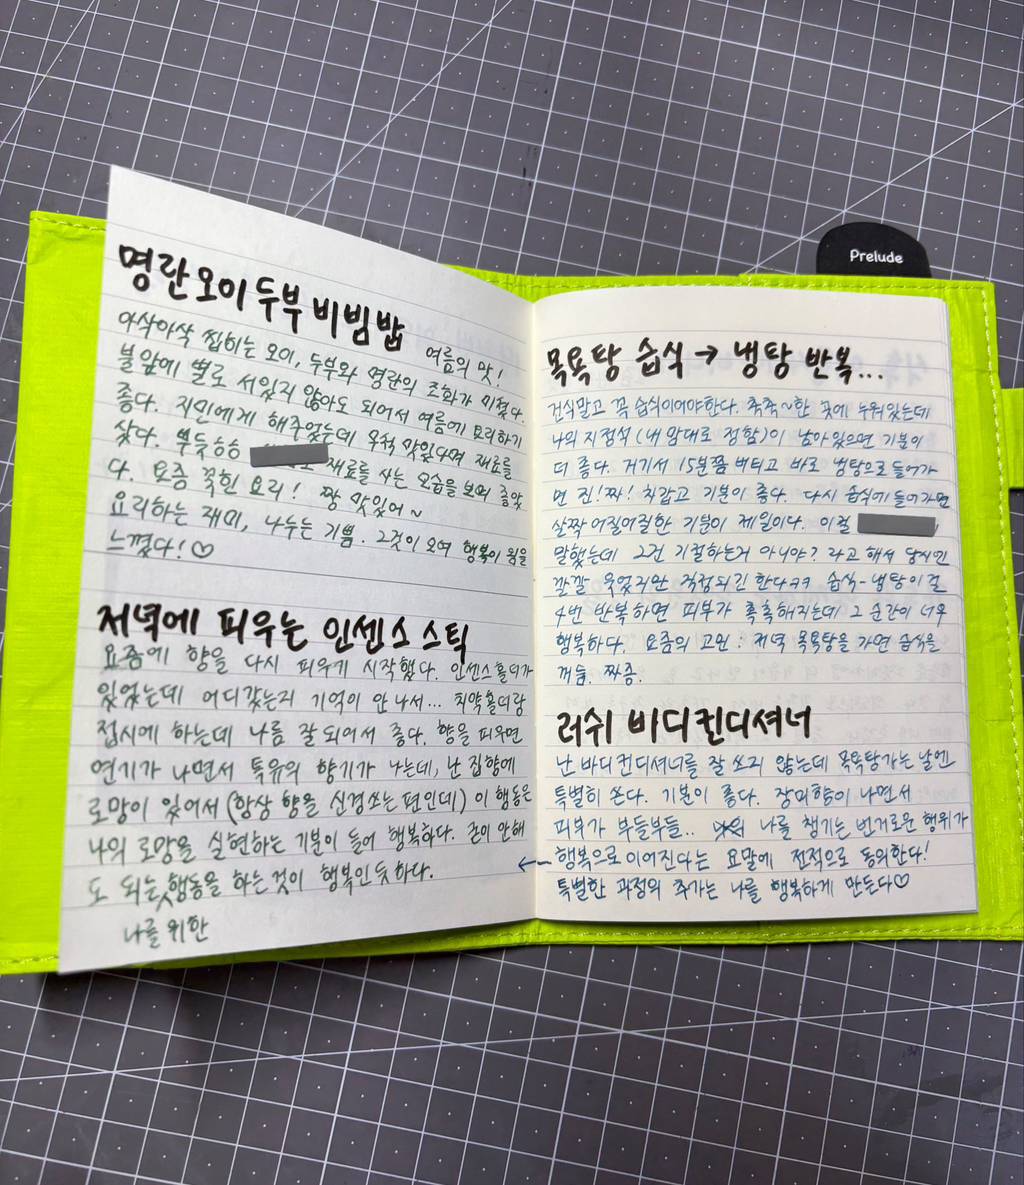 Prelude
명란오이두부비빔밥 여름의 맛!
아삭아삭 씹히는 오이, 두부와 명란의 조화가 미쳤다.
불 앞에 별로 서있지 않아도 되어서 여름에 요리하기
좋다. 지인에게 해주었는데 무척 맛있다며 재료를
샀다. 뿌듯ㅎㅎ 재료를 사는 모습을 보며 좋았
다. 요즘 꽂힌 요리! 짱 맛있어~
요리하는 재미, 나누는 기쁨. 그것이 모여 행복이 됨을
느꼈다!♡
저녁에 피우는 인센스 스틱
요즘에 향을 다시 피우기 시작했다. 인센스 홀더가
있었는데 어디갔는지 기억이 안 나서... 치약홀더랑
접시에 하는데 나름 잘 되어서 좋다. 향을 피우면
연기가 나면서 특유의 향기가 나는데, 난 집향에
로망이 있어서 (항상 향을 신경쓰는 편인데) 이 행동은
나의 로망을 실현하는 기분이 들어 행복하다. 굳이 안해
도 되는 행동을 하는 것이 행복인 듯하다.
나를 위한
목욕탕 습식 → 냉탕 반복...
건식말고 꼭 습식이어야한다. 축축~한 곳에 누워있는데
나의 지정석 (내 맘대로 정함)이 남아있으면 기분이
더 좋다. 거기서 15분쯤 버티고 바로 냉탕으로 들어가
면 진!짜! 차갑고 기분이 좋다. 다시 습식에 들어가면
살짝 어질어질한 기분이 제일이다. 이걸
말했는데 그건 기절하는거 아니야? 라고 해서 당시엔
깔깔 웃었지만 걱정되긴 한다ㅋㅋ 습식-냉탕 이걸
4번 반복하면 피부가 촉촉해지는데 그 순간이 너무
행복하다. 요즘의 고민 : 저녁 목욕탕을 가면 습식을
꺼둠. 짜증.
러쉬 바디컨디셔너
난 바디 컨디셔너를 잘 쓰지 않는데 목욕탕가는 날엔
특별히 쓴다. 기분이 좋다. 장미향이 나면서
피부가 부들부들.. 나를 챙기는 번거로운 행위가
←~ 행복으로 이어진다는 요말에 전적으로 동의한다!
특별한 과정의 추가는 나를 행복하게 만든다♡